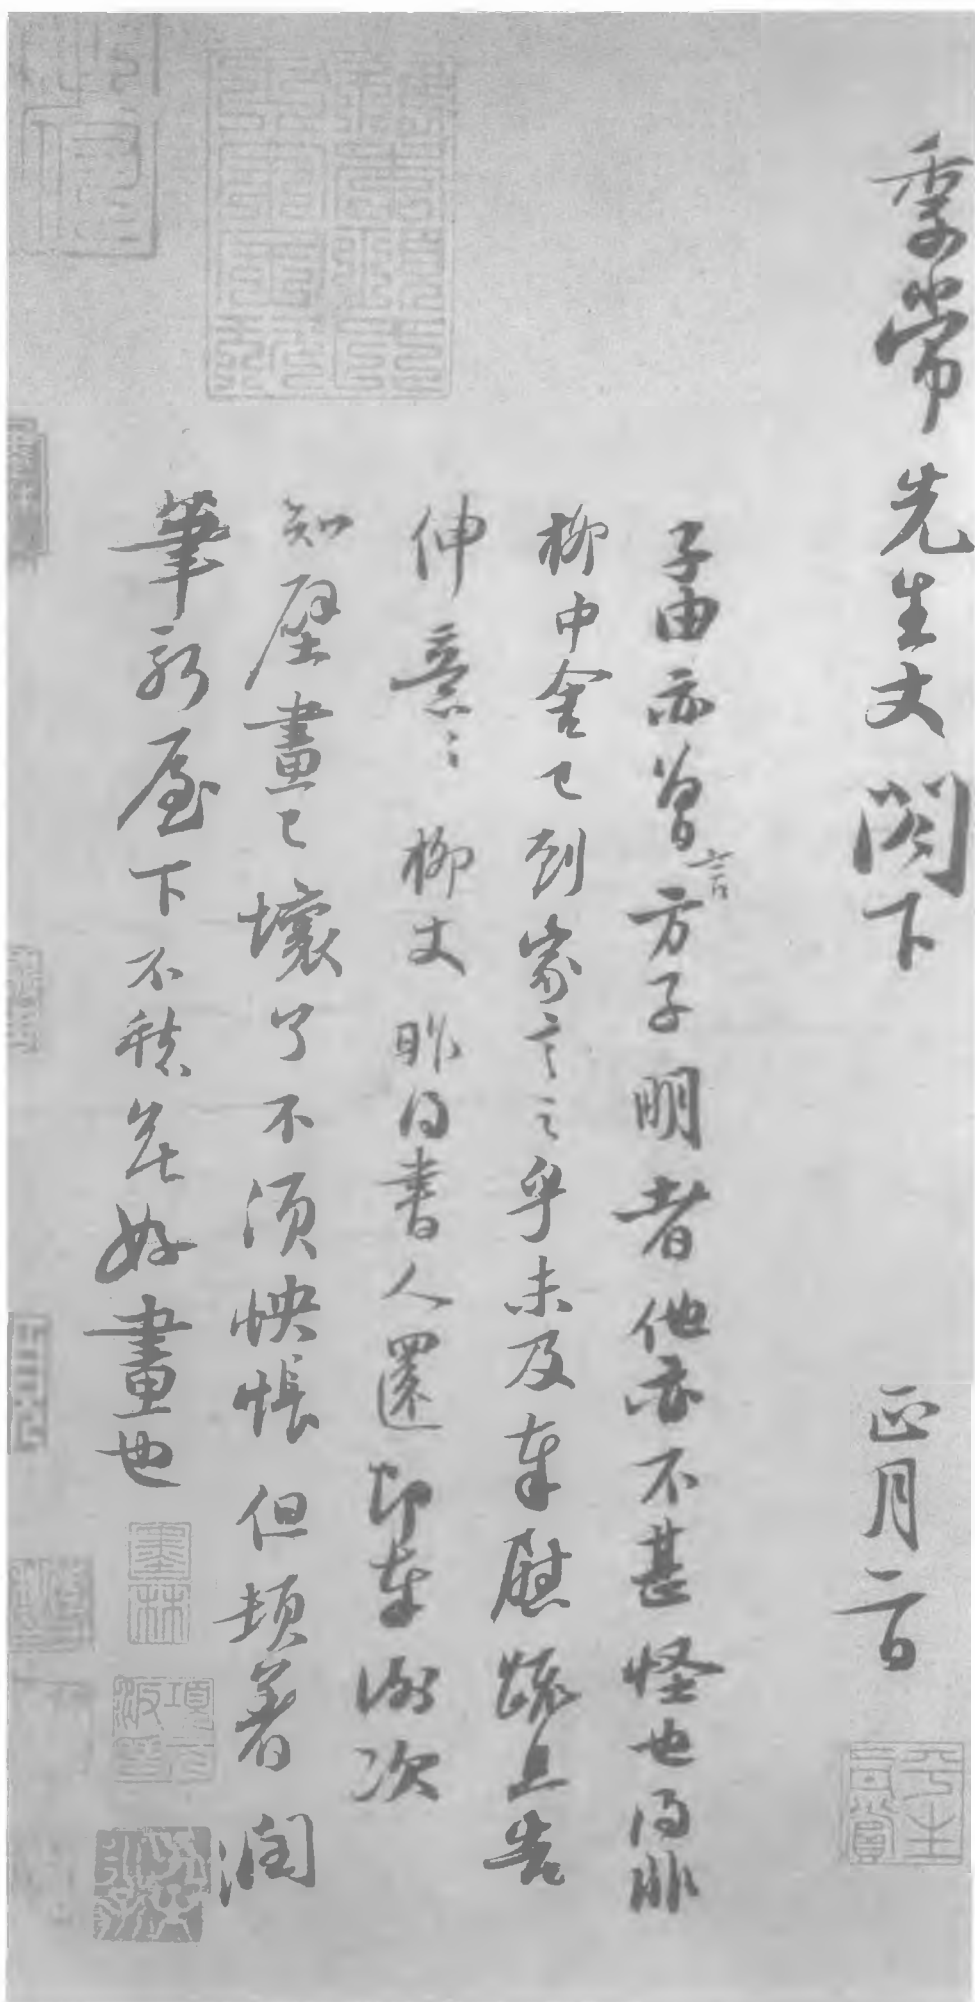 季常先生丈閣下 正月二日
子由亦曾言方子明者他亦不甚怪也得非
柳中舍已到家言之乎未及奉慰疏且告
伸意〻柳丈昨得書人還即奉謝次
知壁畫已壞了不須怏悵但頓著潤
筆新屋下不愁無好畫也
平生真賞
墨林